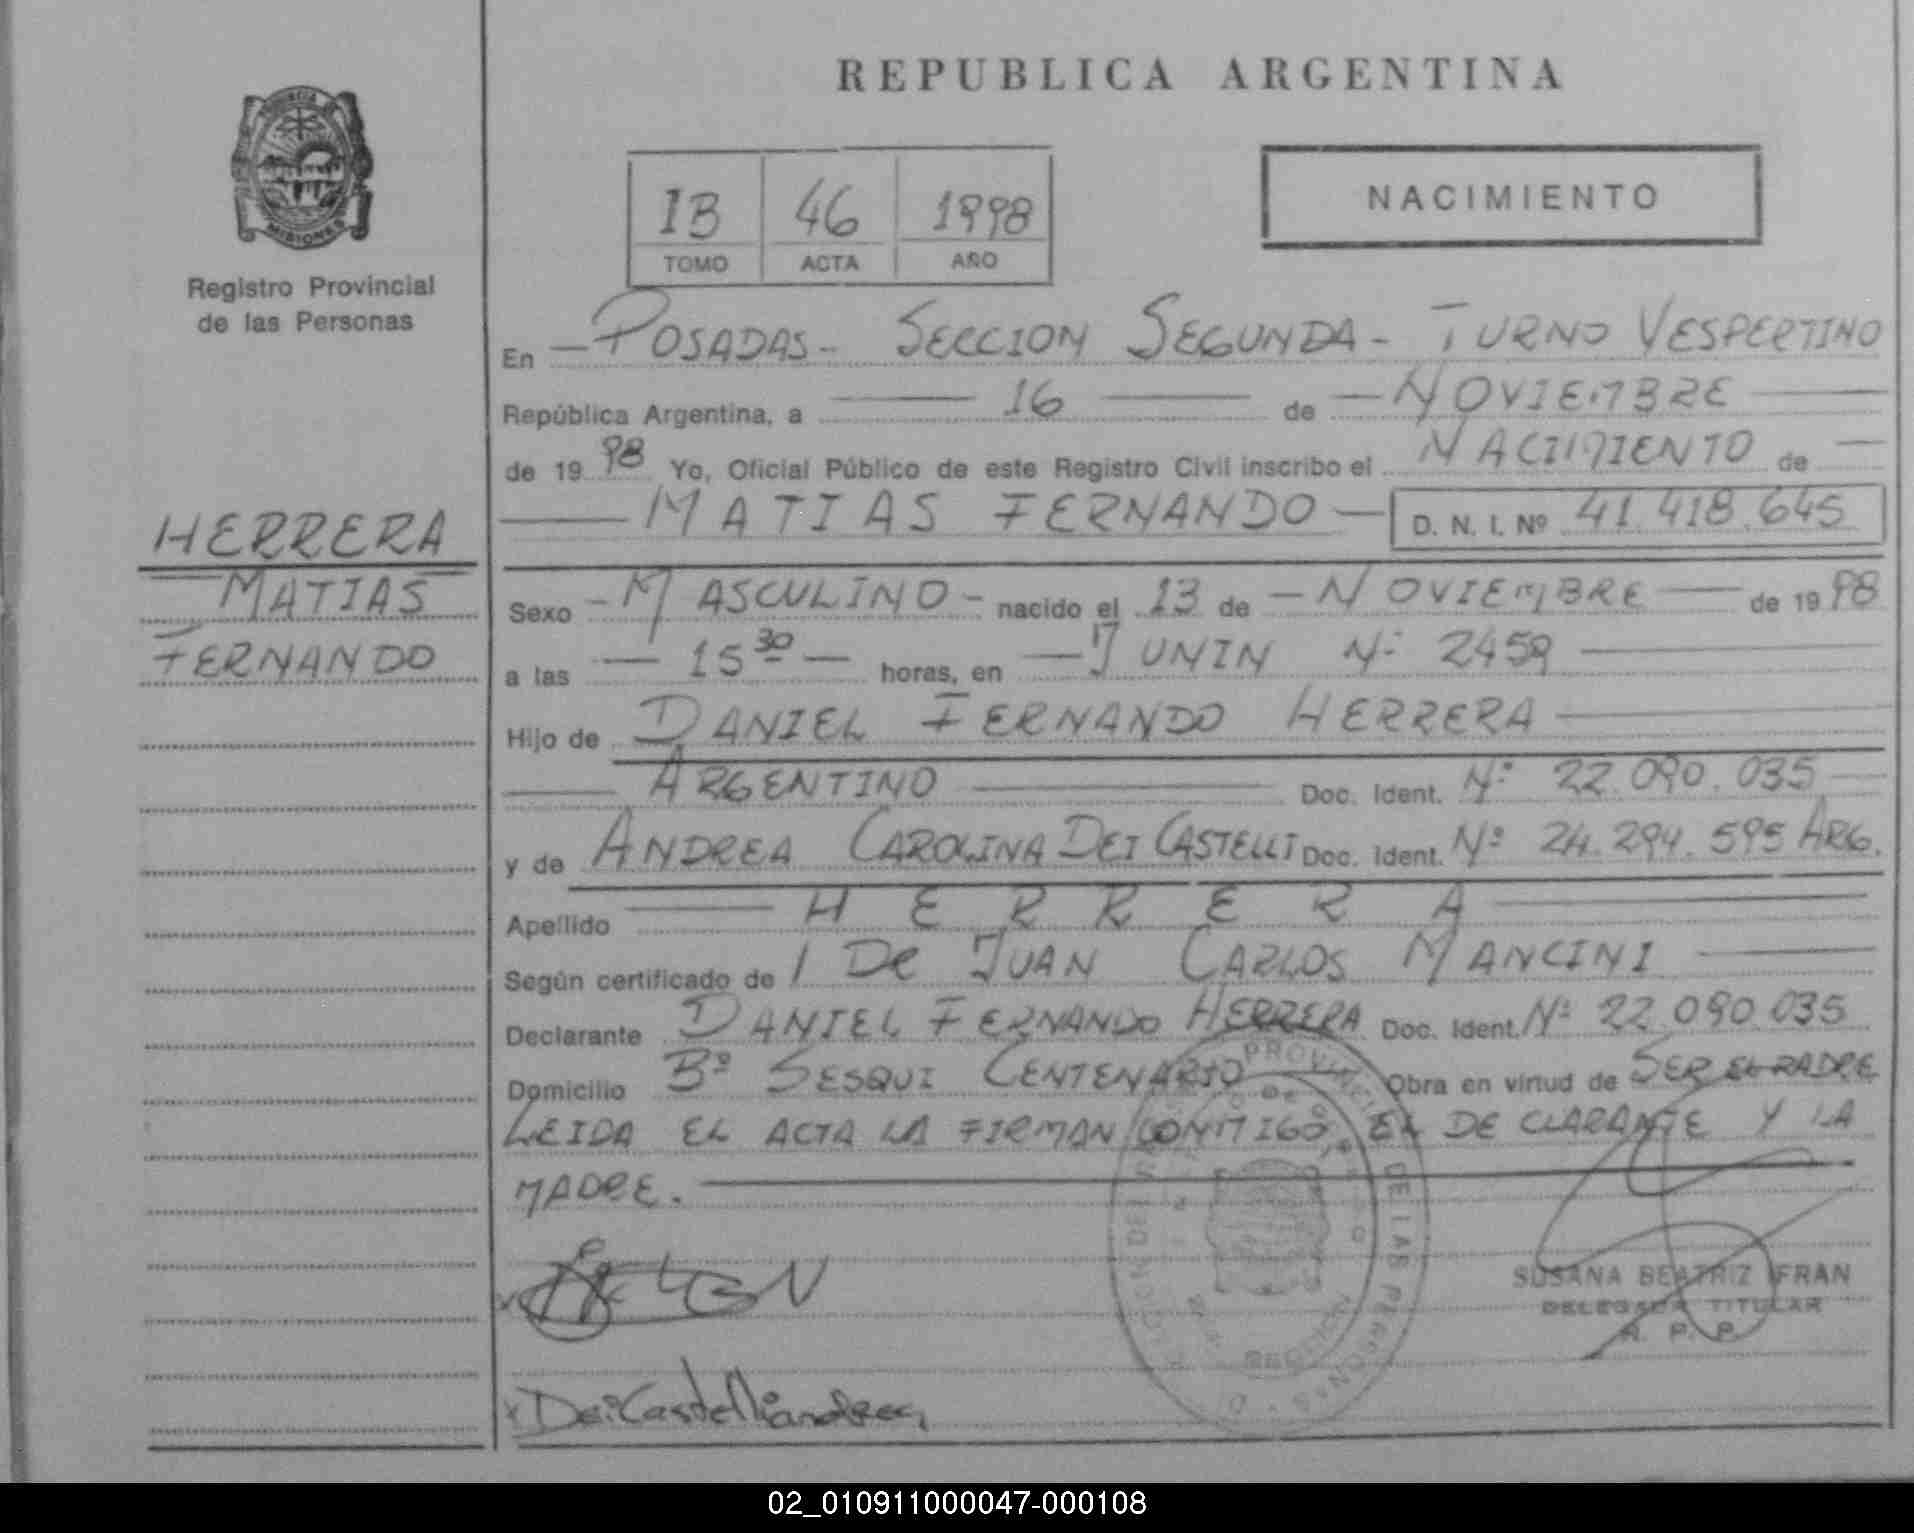 REPUBLICA ARGENTINA
PROVINCIA
MISIONES
Registro Provincial
de las Personas
1B 46 1998
TOMO ACTA AÑO
NACIMIENTO
En — POSADAS - SECCION SEGUNDA - TURNO VESPERTINO
República Argentina, a — 16 — de — NOVIEMBRE —
de 19 98 Yo, Oficial Público de este Registro Civil inscribo el NACIMIENTO de —
— MATIAS FERNANDO — D. N. I. Nº 41.418.645
HERRERA
MATIAS
FERNANDO
Sexo - MASCULINO - nacido el 13 de — NOVIEMBRE — de 19 98
a las — 15 30 — horas, en — JUNIN Nº 2459 —
Hijo de DANIEL FERNANDO HERRERA —
— ARGENTINO — Doc. Ident. Nº 22.090.035 —
y de ANDREA CAROLINA DEI CASTELLI Doc. Ident. Nº 24.294.595 ARG.
Apellido — HERRERA —
Según certificado de 1 De JUAN CARLOS MANCINI —
Declarante DANIEL FERNANDO HERRERA Doc. Ident. Nº 22.090.035
Domicilio Bº SESQUI CENTENARIO Obra en virtud de SER EL PADRE
LEIDA EL ACTA LA FIRMAN CONMIGO, EL DECLARANTE Y LA
MADRE. —
PROVINCIAL DE LAS PERSONAS
SUSANA BEATRIZ IFRAN
DELEGADA TITULAR
R. P. P.
x Dei Castelli andrea
02_010911000047-000108